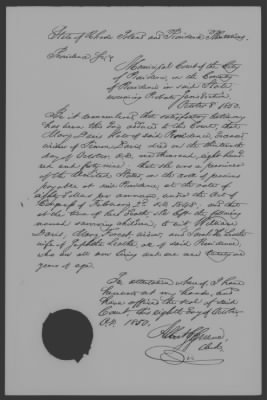 State of Rhode Island and Providence Plantations,
Providence Sc.
Municipal Court of the City
of Providence, in the County
of Providence in said State,
exercising Probate Jurisdiction,
October 8. 1850.
Be it remembered that satisfactory testimony
has been this day adduced to the Court, that
Mary Davis late of said Providence,
widow of Simon Davis died on the thirteenth
day of October A.D. one thousand, eight hund
red and forty nine; that she was a Pensioner
of the United States on the roll of pensions
payable at said Providence, at the rate of
Dollars per annum, under the Act of
Congress of February 2d A.D. 1848; and that
at the time of her death she left the following
named surviving children, to wit William
Davis, Mary and Sarah
wife of Joseph of said Providence,
who are all now living and are over twenty one
years of age.
In testimony whereof I have
hereunto set my hand, and
have affixed the seal of said
Court, this eighth day of October
A.D. 1850.
Albert G. Greene,
Clerk.